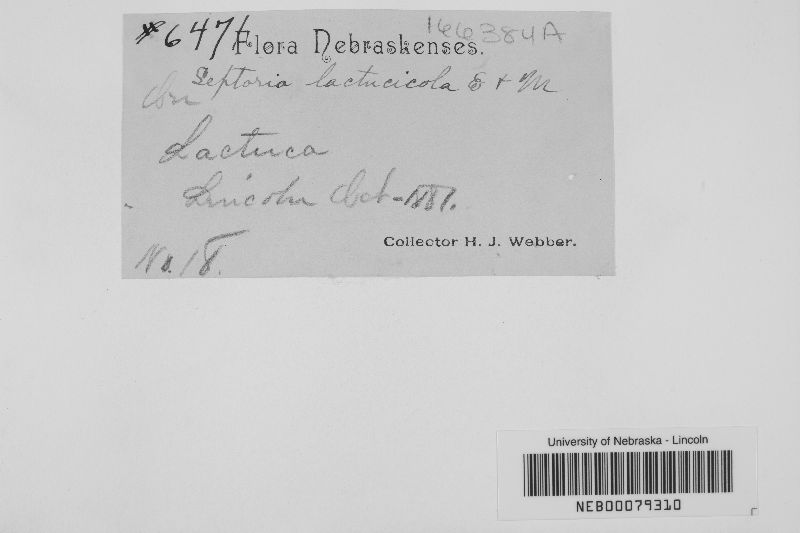 166384A
*6471 Flora Nebraskenses.
Septoria lactucicola E + M
On
Lactuca
Lincoln Oct - 1887.
Collector H. J. Webber.
No. 18.
University of Nebraska - Lincoln
NEB00079310